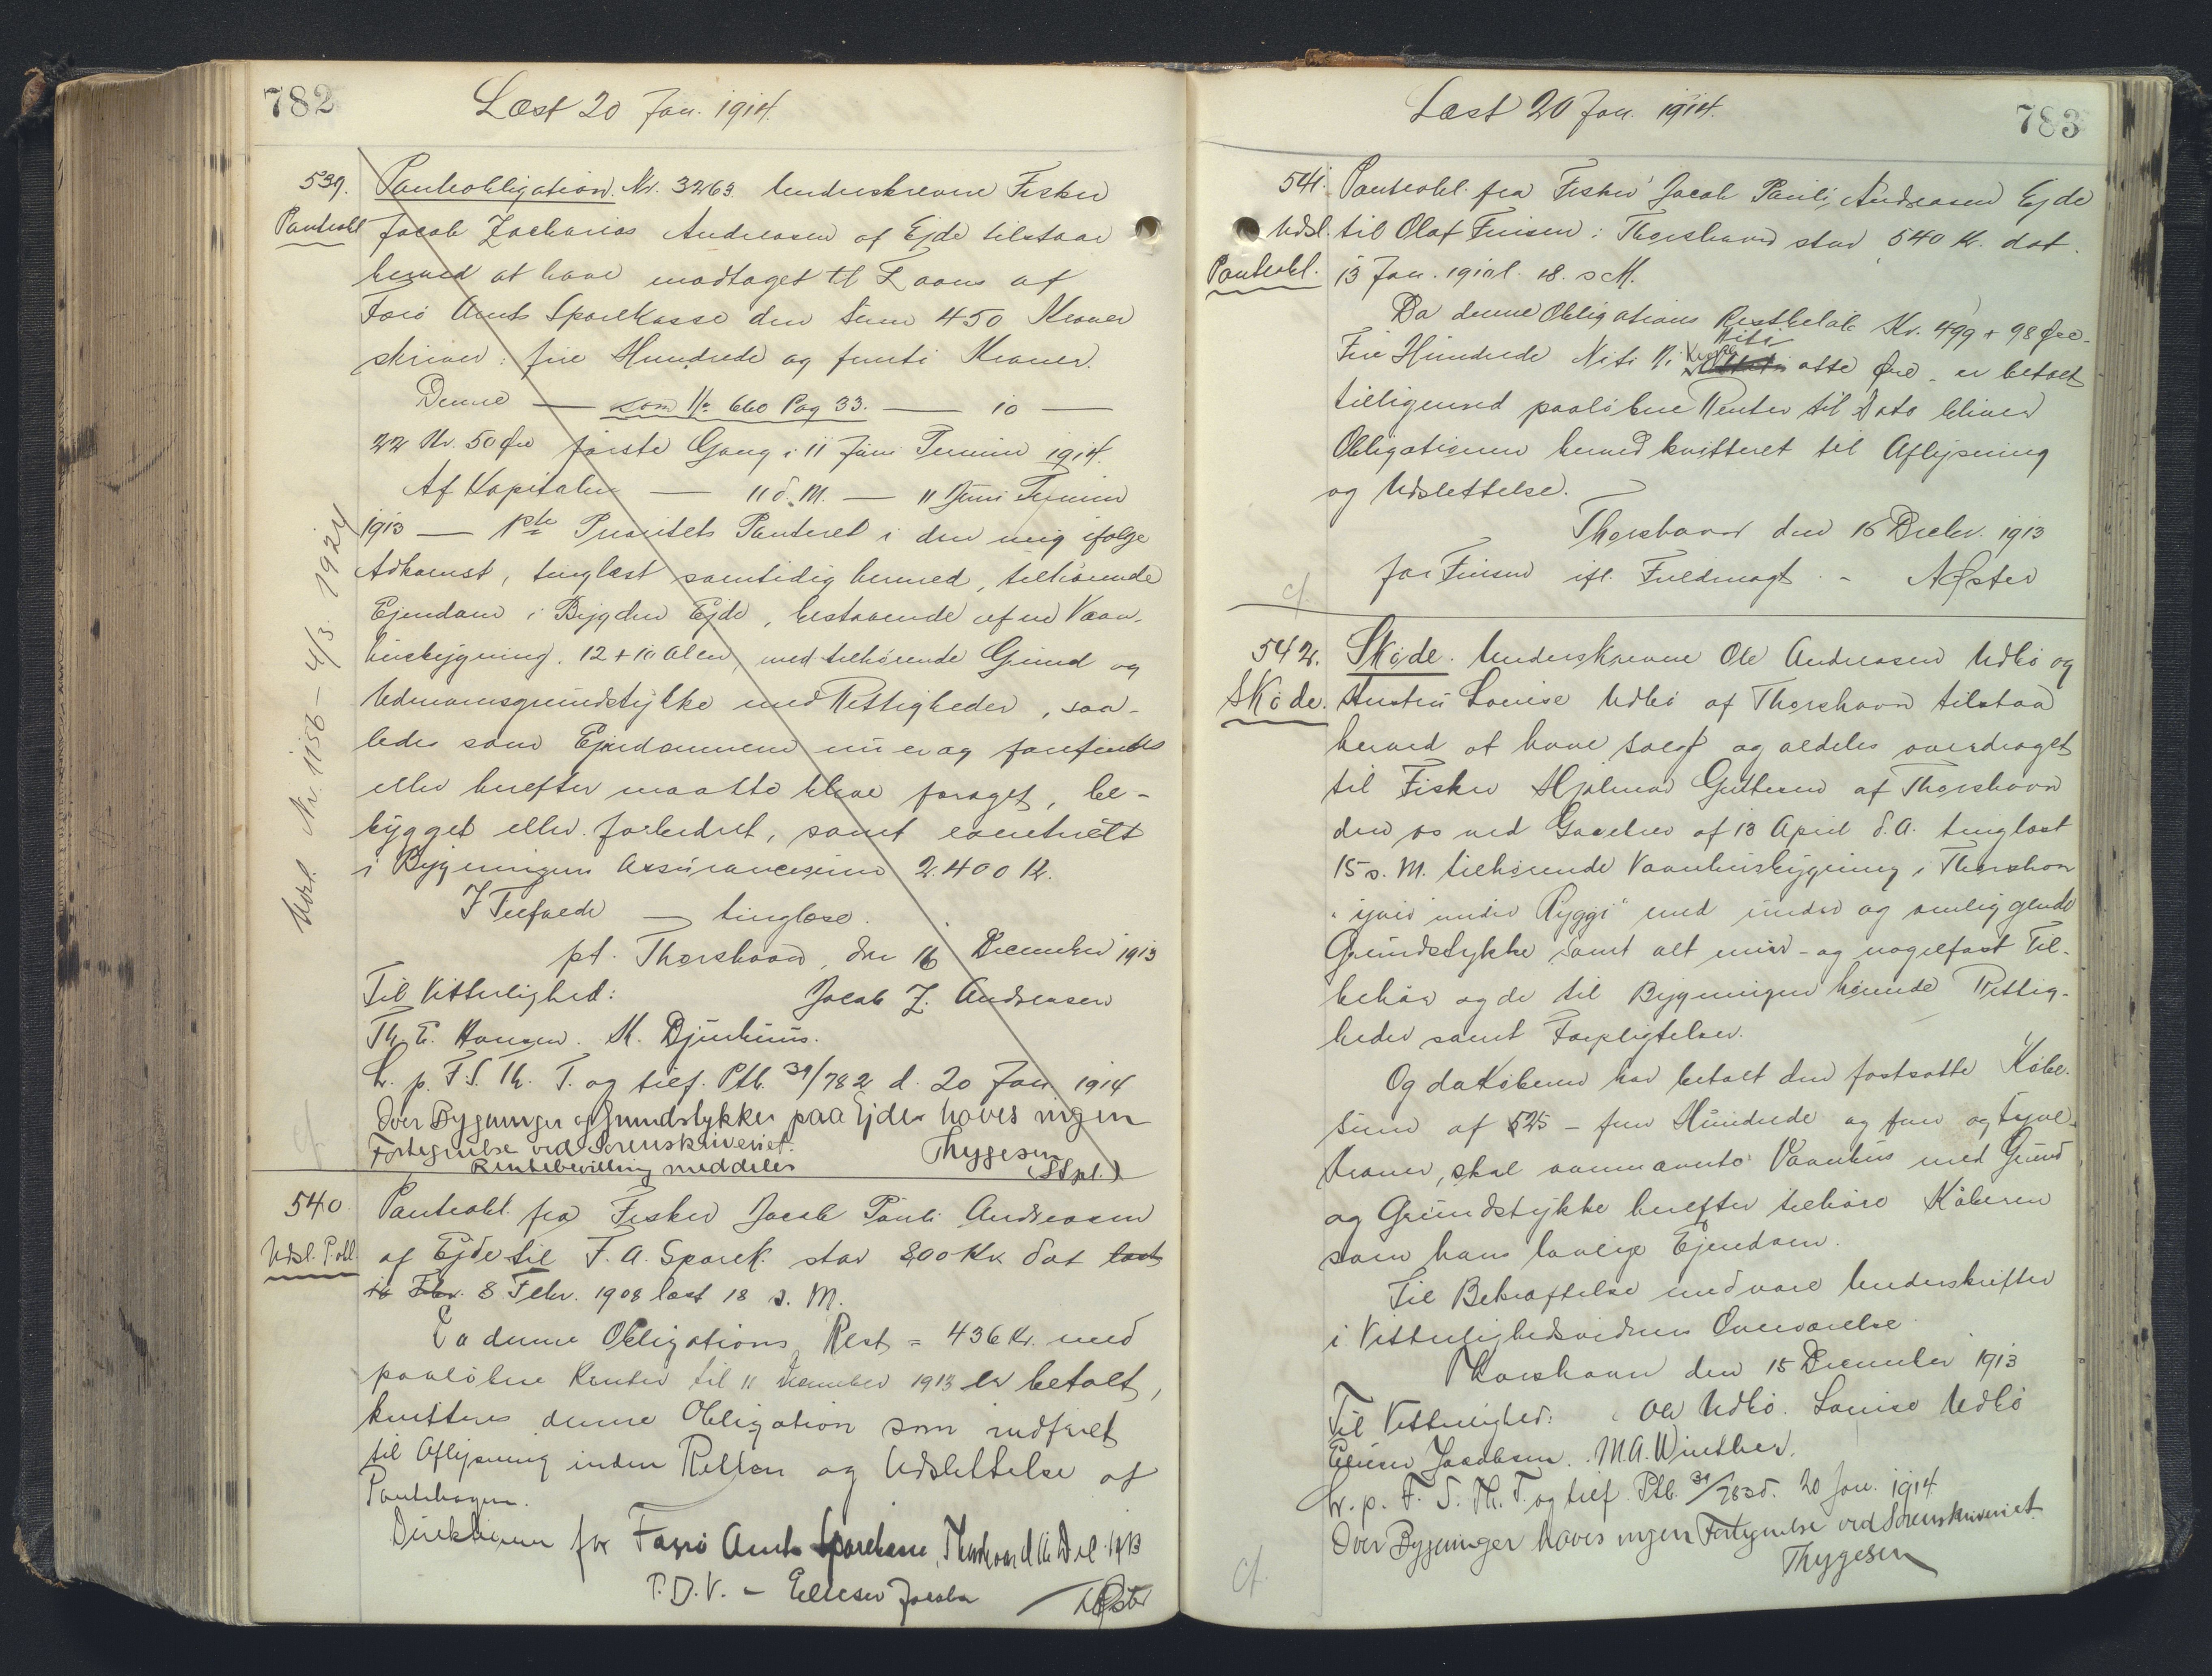 782
Læst 20 Jan. 1914.
539. Panteobligation. Nr. 3263. Underskrevne Fisker
Panteobl. Jacob Zacharias Andreasen af Ejde tilstaar
herved at have modtaget til Laans af
Færø Amts Sparekasse den Sum 450 Kroner
skriver: fire Hundrede og femti Kroner.
Denne — som Nr. 660 Pag 33. — 10 —
22 Kr. 50 Øre første Gang i 11 Juni Termin 1914.
Af Kapitalen — 11 d. M. — 11 Juni Termin
1913 — 1ste Prioritets Panteret i den mig ifølge
Adkomst, tinglæst samtidig hermed, tilhørende
Ejendom i Bygden Ejde, bestaaende af en Vaan-
husbygning. 12 + 10 Alen, med tilhørende Grund og
Udmarksgrundstykke med Rettigheder, saa-
ledes som Ejendommen nu er og forefindes
eller herefter maatte blive forøget, be-
bygget eller forbedret, samt eventuelt
i Bygningens Assurancesum 2400 Kr.
I Tilfælde — tinglæse.
pt. Thorshavn, den 16 December 1913
Til Vitterlighed: Jacob Z. Andreasen
Th. E. Hansen. M. Djurhuus.
L. p. F. S. Th. T. og tilf. Ptb. 31/782 d. 20 Jan. 1914
Over Bygninger og Grundstykker paa Ejde haves ingen
Fortegnelse ved Sorenskriveriet.
Rentebevilling meddeles Thygesen
(Stpl.)
Udsl. Nr. 1156 – 4/3 1924
cf.
540. Panteobl. fra Fisker Jacob Pauli Andreasen
Udsl. P.obl. af Ejde til F. A. Sparek. stor 800 Kr. dat læst
16 Febr. 8 Febr. 1908 læst 18 s. M.
Da denne Obligations Rest = 436 Kr. med
paaløbne Renter til 11 December 1913 er betalt,
kvitteres denne Obligation som indfriet
til Aflysning inden Retten og Udslettelse af
Pantebogen.
Direktionen for Færø Amts Sparekasse, Thorshavn d. 16 Decl. 1913
P. D. V. – Elieser Jacobsen A Øster
783
Læst 20 Jan. 1914.
541. Panteobl. fra Fisker Jacob Pauli Andreasen Ejde
Udsl. til Olaf Finsen i Thorshavn stor 540 Kr. dat.
Panteobl. 13 Jan. 1910 l. 18. s M.
Da denne Obligations Restbeløb Kr. 499 + 98 Øre.
Fire Hundrede Niti Ni Kroner Niti otte Øre er betalt
tilligemed paaløbne Renter til Dato bliver
Obligationen herved kvitteret til Aflysning
og Udslettelse.
Thorshavn den 16 Decbr. 1913
for Finsen ifl. Fuldmagt. – A Øster
cf.
542. Skøde. Underskrevne Ole Andreasen Udbø og
Skøde. Hustru Louise Udbø af Thorshavn tilstaa
herved at have solgt og aldeles overdraget
til Fisker Hjalmar Guttesen af Thorshavn
den os ved Gavebrev af 13 April d. A. tinglæst
15 s. M. tilhørende Vaanhusbygning i Thorshavn
"yvir under Ryggi" med under og omliggende
Grundstykke samt alt mur- og nagelfast Til-
behør og de til Bygningen hørende Rettig-
heder samt Forpligtelser.
Og da Køberen har betalt den fastsatte Købe-
sum af 525 – fem Hundrede og fem og tyve
Kroner, skal ovennævnte Vaanhus med Grund
og Grundstykke herefter tilhøre Køberen
som hans lovlige Ejendom.
Til Bekræftelse med vore Underskrifter
i Vitterlighedsvidners Overværelse
Thorshavn den 15 December 1913
Til Vitterlighed: Ole Udbø. Louise Udbø
Elieser Jacobsen. M. A. Winther.
L. p. F. S. Th. T. og tilf. Ptb. 31/783 d. 20 Jan. 1914
Over Bygninger haves ingen Fortegnelse ved Sorenskriveriet.
Thygesen
cf.